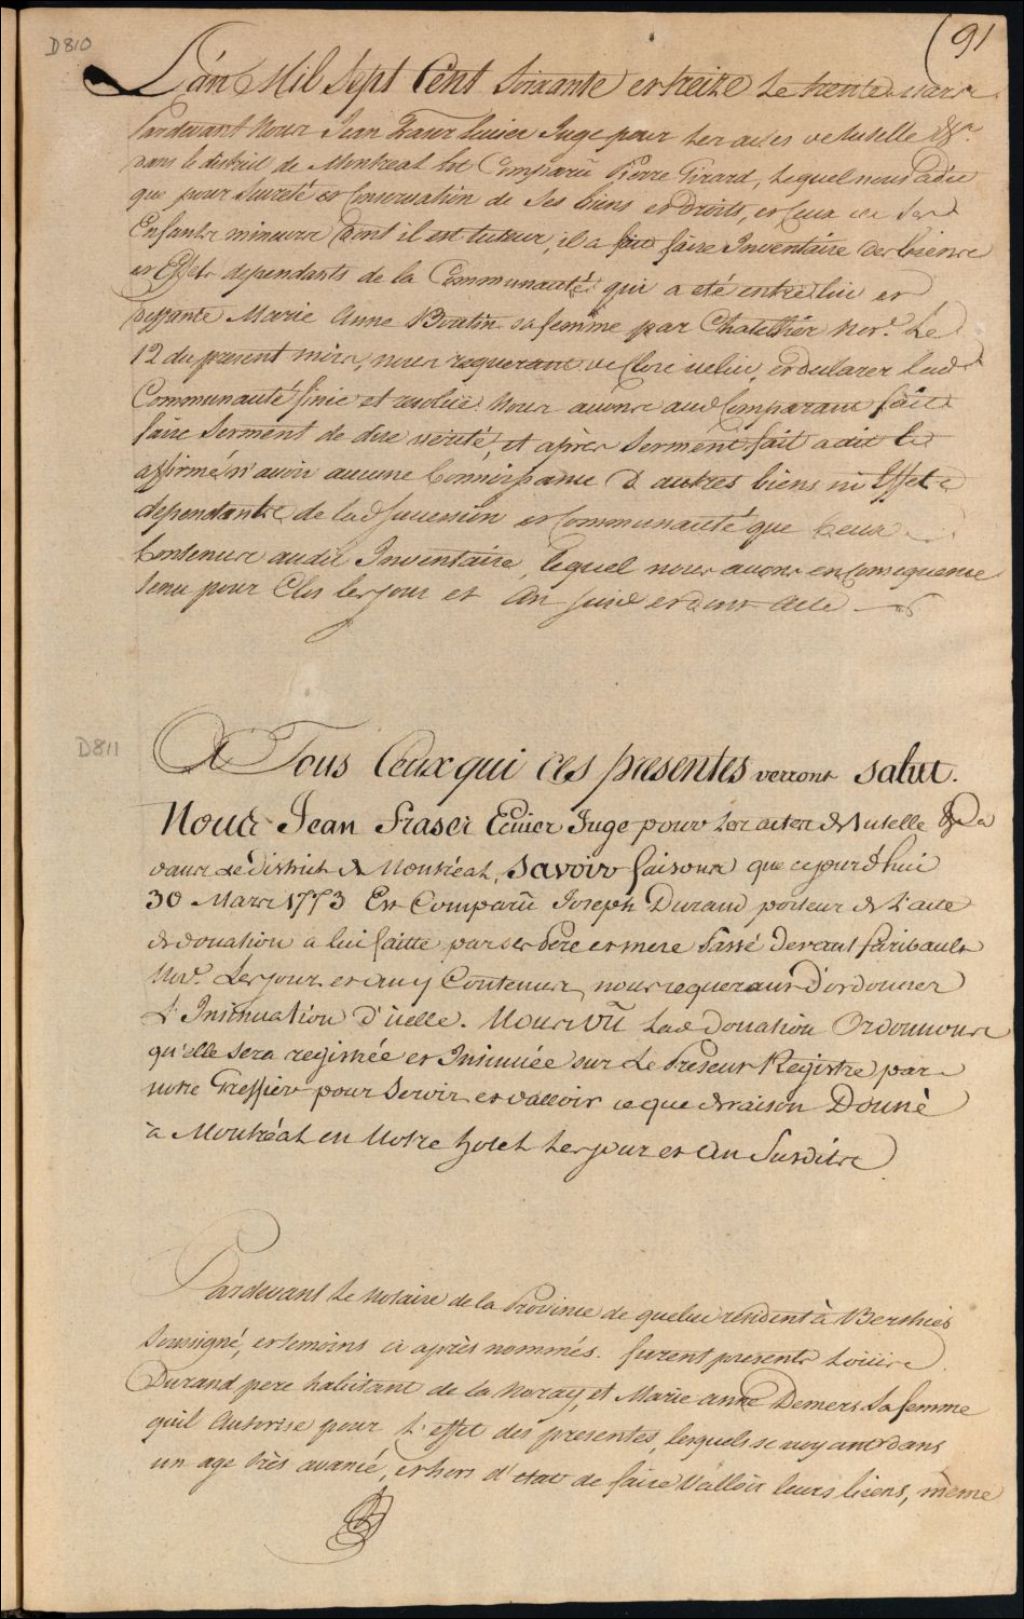 D810
(91
L'an Mil Sept Cent Soixante et treize Le trente mars
Pardevant Nous Jean Fraser Ecuier Juge pour les actes de tutelle &a
dans le district de Montreal Est Comparu Pierre Girard, Lequel nous a dit
que pour Sureté et Conservation de Ses biens et droits, et Ceux de Ses
Enfants mineurs dont il est tuteur, il a fait faire Inventaire des biens
et Effets dependants de la Communauté qui a eté entre lui et
deffunte Marie Anne Boutin sa femme par Chatellier Nore. Le
12 du present mois, nous requerant de Clore icelui, et declarer lad
Communauté finie et resolue Nous avons aud Comparant fait
faire Serment de dire verité, et après Serment fait a dit et
affirmé n'avoir aucune Connoissance d'autres biens ni Effets
dependants de lad Succession et Communauté que Ceux
Contenus audit Inventaire, lequel nous avons en Consequence
tenu pour Clos les jour et An Susd et dont Acte
D811
A Tous Ceux qui ces presentes verront salut.
Nous Jean Fraser Ecuier Juge pour les actes de Tutelle &a
dans Le District de Montréal, Savoir faisons que cejourd'hui
30 Mars 1773 Est Comparu Joseph Durand porteur de L'acte
de donation a lui faitte par ses Pere et mere Passé Devant Faribault
Nore. Les jour et an y Contenus, nous requerant D'ordonner
L'Insinuation d'icelle. Nous Vû Lad Donation Ordonnons
qu'elle sera registrée et Insinuée sur Le Present Registre par
notre Greffier pour Servir et valloir ce que de raison Donné
à Montréal en Notre hotel Les jour et An Susdits
Pardevant Le Notaire de la Province de quebec resident à Berthier
Soussigné, et temoins ci après nommés. furent presents Louis
Durand pere habitant de la Noray, et Marie anne Demers Sa femme
quil Autorise pour L'effet des presentes, lesquels se voyant dans
un age très avancé, et hors d'etat de faire Valloir leurs biens, même